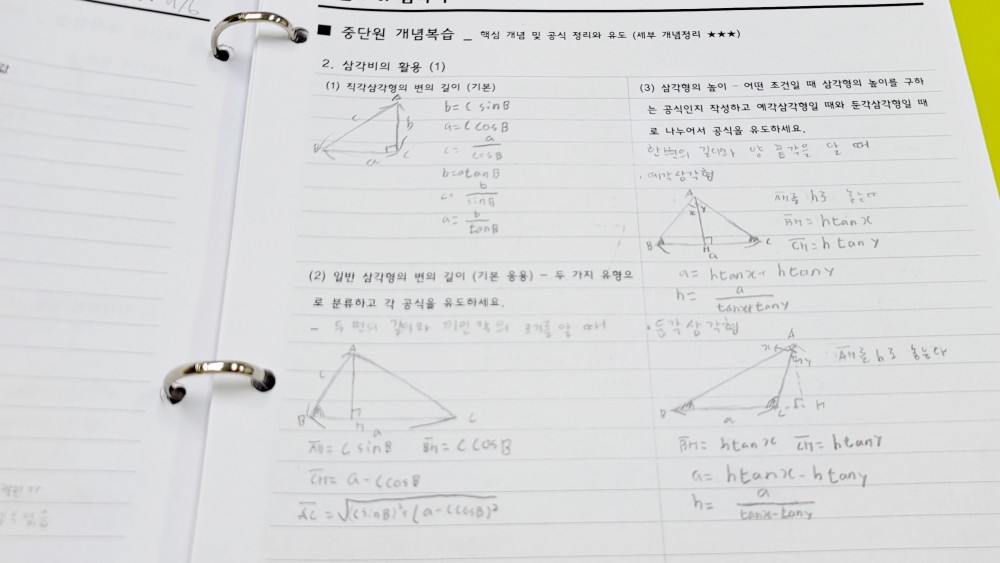 ■ 중단원 개념복습 _ 핵심 개념 및 공식 정리와 유도 (세부 개념정리 ★★★)
2. 삼각비의 활용 (1)
(1) 직각삼각형의 변의 길이 (기본)
A
c
b
B
a
C
b = c sinB
a = c cosB
c = a/cosB
b = a tanB
c = b/sinB
a = b/tanB
(2) 일반 삼각형의 변의 길이 (기본 응용) - 두 가지 유형으
로 분류하고 각 공식을 유도하세요.
- 두 변의 길이와 끼인 각의 크기를 알 때
A
c
B
H
a
C
AH = c sinB BH = c cosB
CH = a - c cosB
AC = √(c sinB)² + (a - c cosB)²
(3) 삼각형의 높이 - 어떤 조건일 때 삼각형의 높이를 구하
는 공식인지 작성하고 예각삼각형일 때와 둔각삼각형일 때
로 나누어서 공식을 유도하세요.
한 변의 길이와 양 끝각을 알 때
· 예각삼각형
A
x y
B
H
C
a
AH를 h로 놓는다
BH = h tan x
CH = h tan y
a = h tan x + h tan y
h = a/tan x + tan y
· 둔각삼각형
A
x
y
B
a
C
H
AH를 h로 놓는다
BH = h tan x CH = h tan y
a = h tan x - h tan y
h = a/tan x - tan y